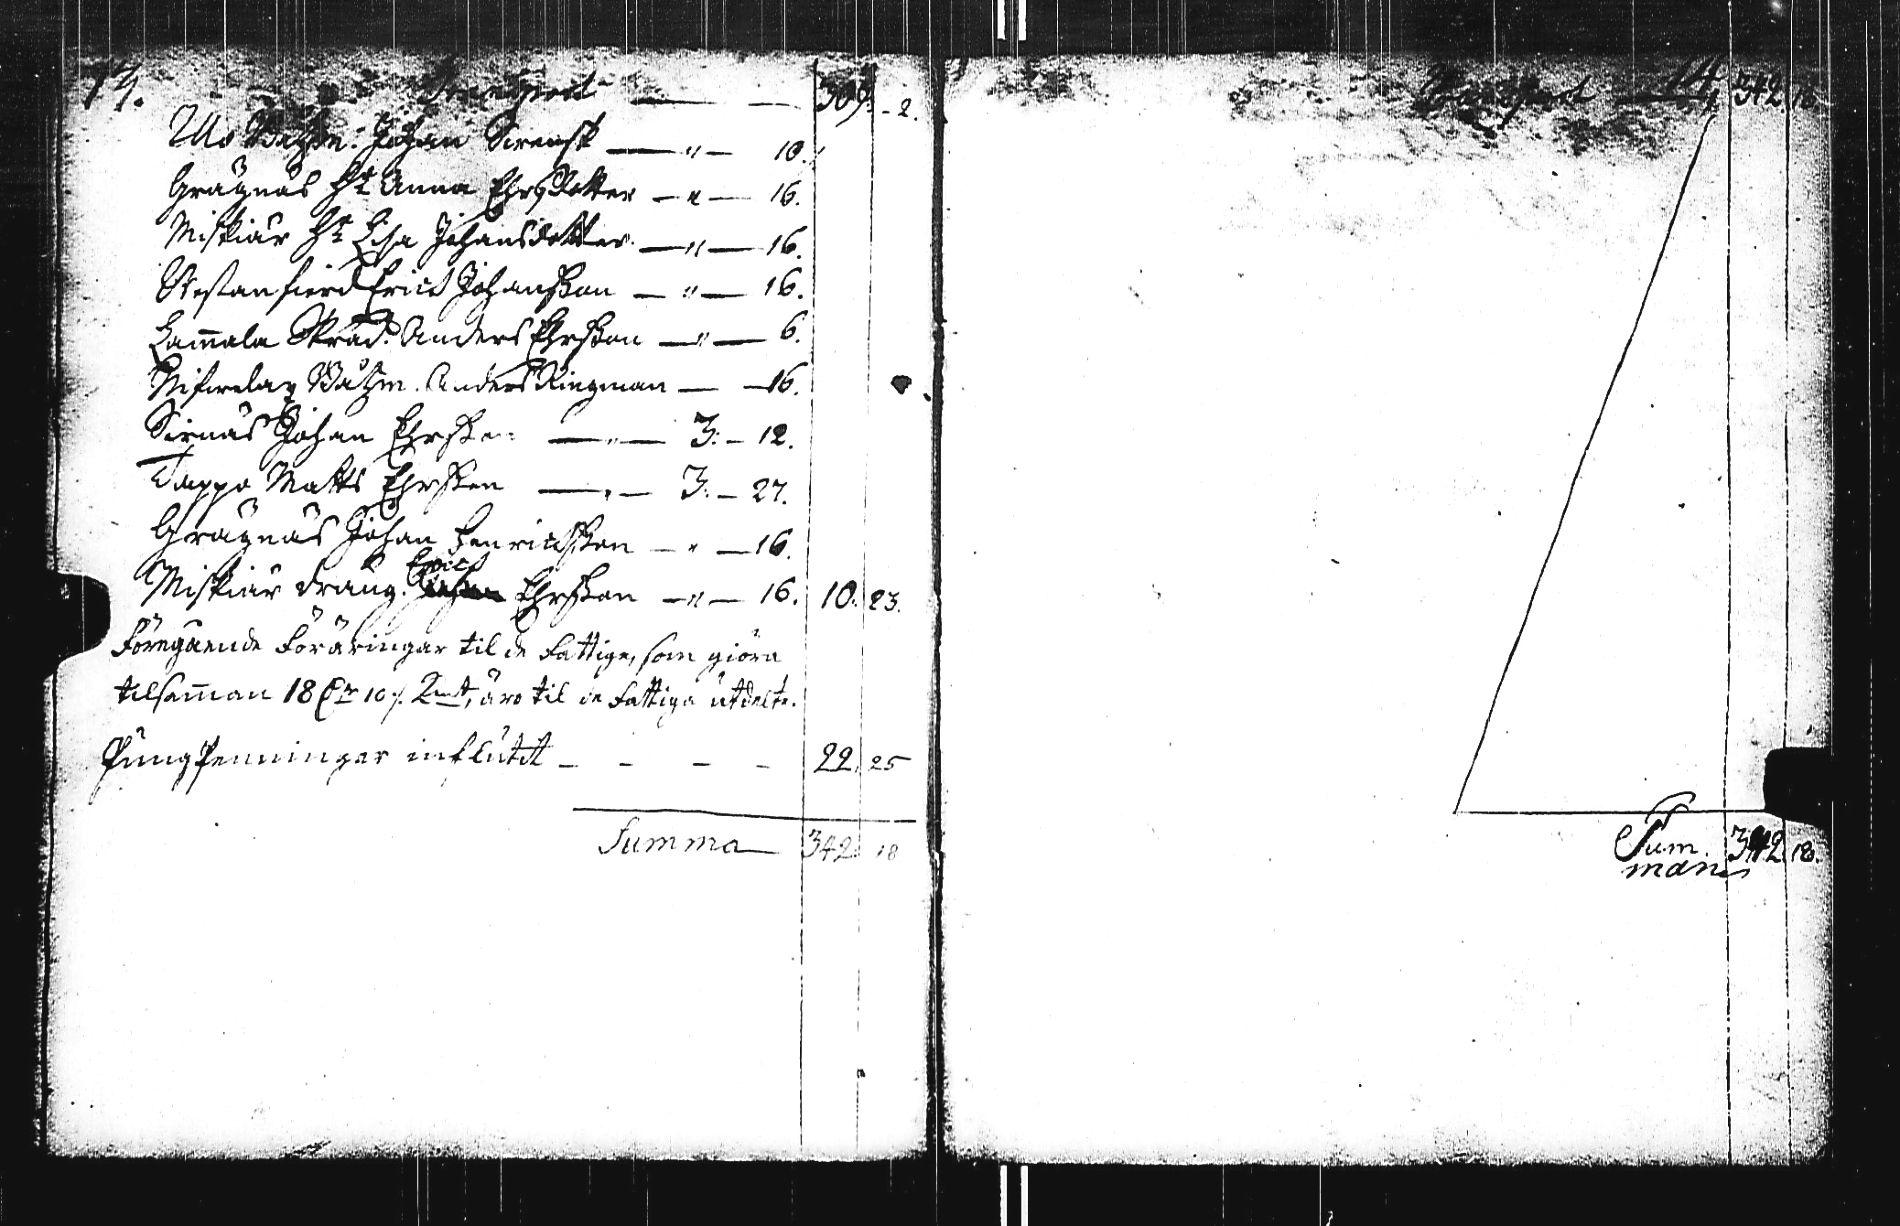 14.
Transport — — 309. - 2.
Mo Båtzm: Johan Sirensk — " — 10.
Grägnäs H:r Anna Ehrsdotter — " — 16.
Miskiär H:r Lisa Johansdotter — " — 16.
Westanfierd Eric Johansson — " — 16.
Lam̃ala Skräd. Anders Ehrsson — " — 6.
Nifvelax Båtzm. Anders Ringman — — 16.
Sirnäs Johan Ehrsson — " — 3: – 12.
Tappo Matts Ehrsson — " — 3: – 27.
Grägnäs Johan Henricsson — " — 16.
Eric
Miskiär dräng. Johan Ehrsson — " — 16. 10. 23.
Föregående Föräringar til de Fattige, som giöra
tilsam̃an 18 10 äro til de Fattiga utdelte.
Pung Penningar influtit – – – – 22. 25
Summa 342. 18
14.
Transport — 342. 18
Sum 342. 18.
man